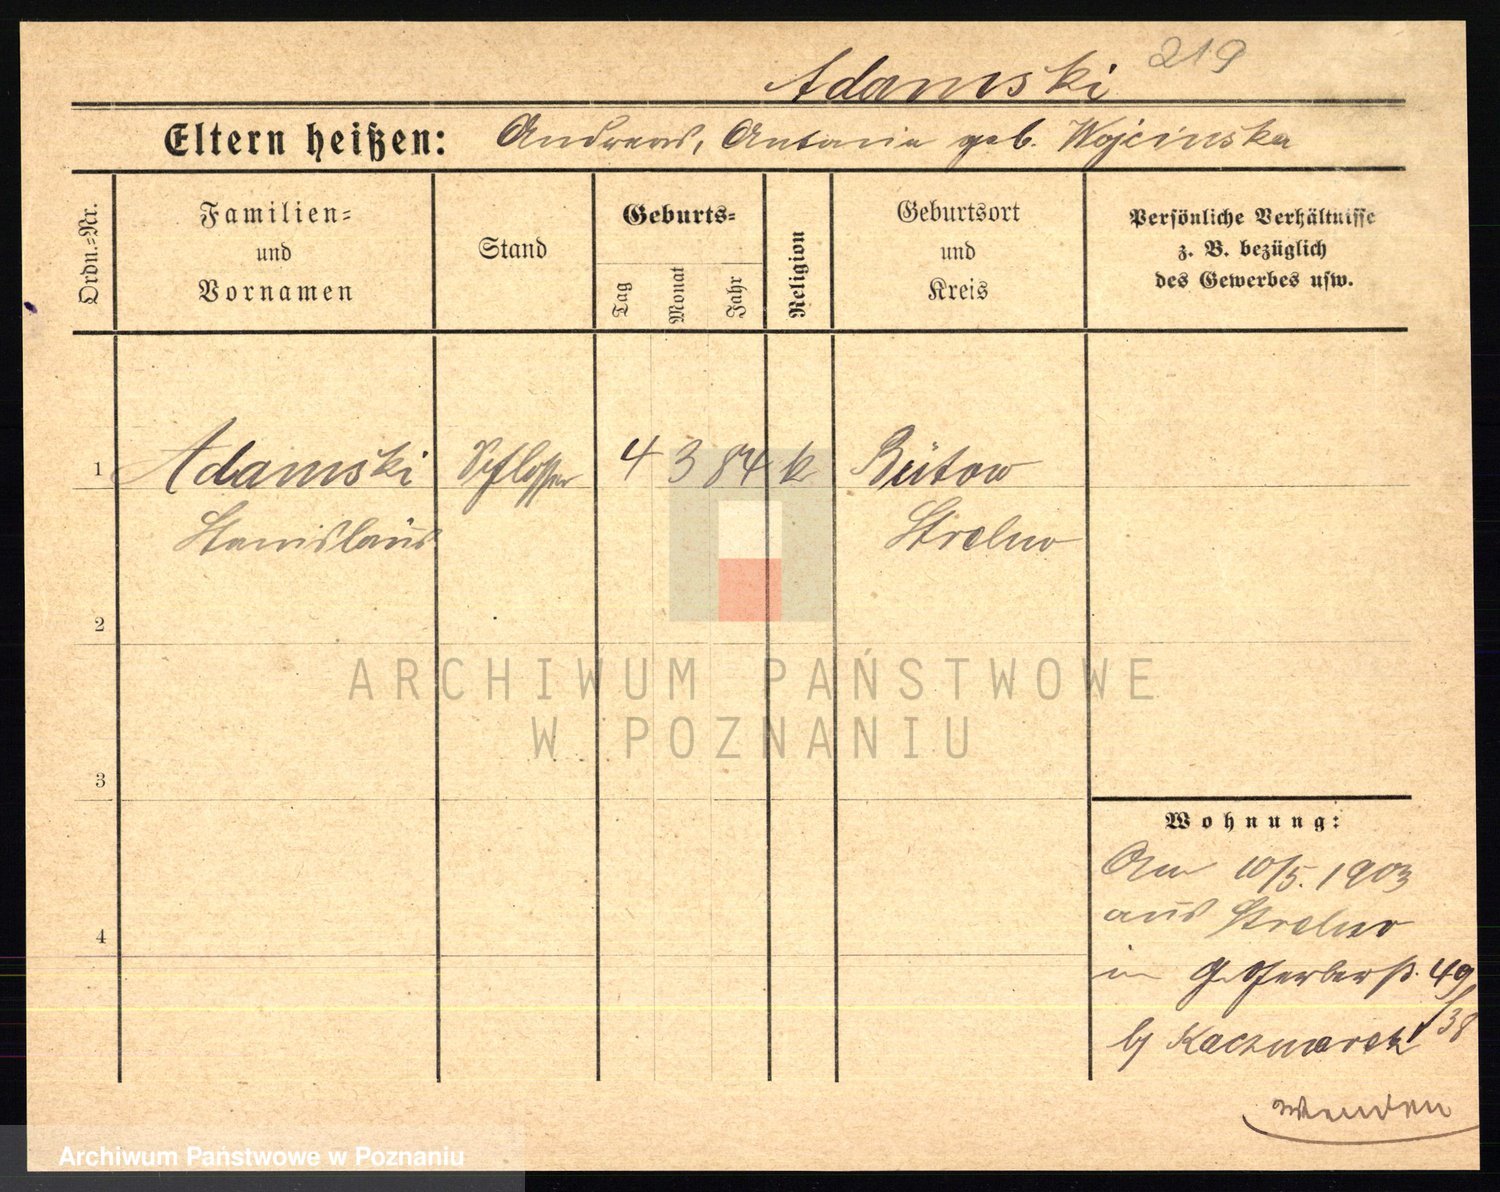 Adamski 219
Eltern heißen: Andreas, Antonie geb. Wojcinska
Ordn.-Nr.
Familien-
und
Vornamen
Stand
Geburts-
Tag
Monat
Jahr
Religion
Geburtsort
und
Kreis
Persönliche Verhältnisse
z. B. bezüglich
des Gewerbes usw.
1 Adamski Schlosser 4 3 84 k Bütow
Stanislaus Strelno
2
3
4
ARCHIWUM PAŃSTWOWE
W POZNANIU
Wohnung:
Am 10/5. 1903
aus Strelno
in Gr. Gerberstr. 49
38
bj Kaczmarek
wenden
Archiwum Państwowe w Poznaniu